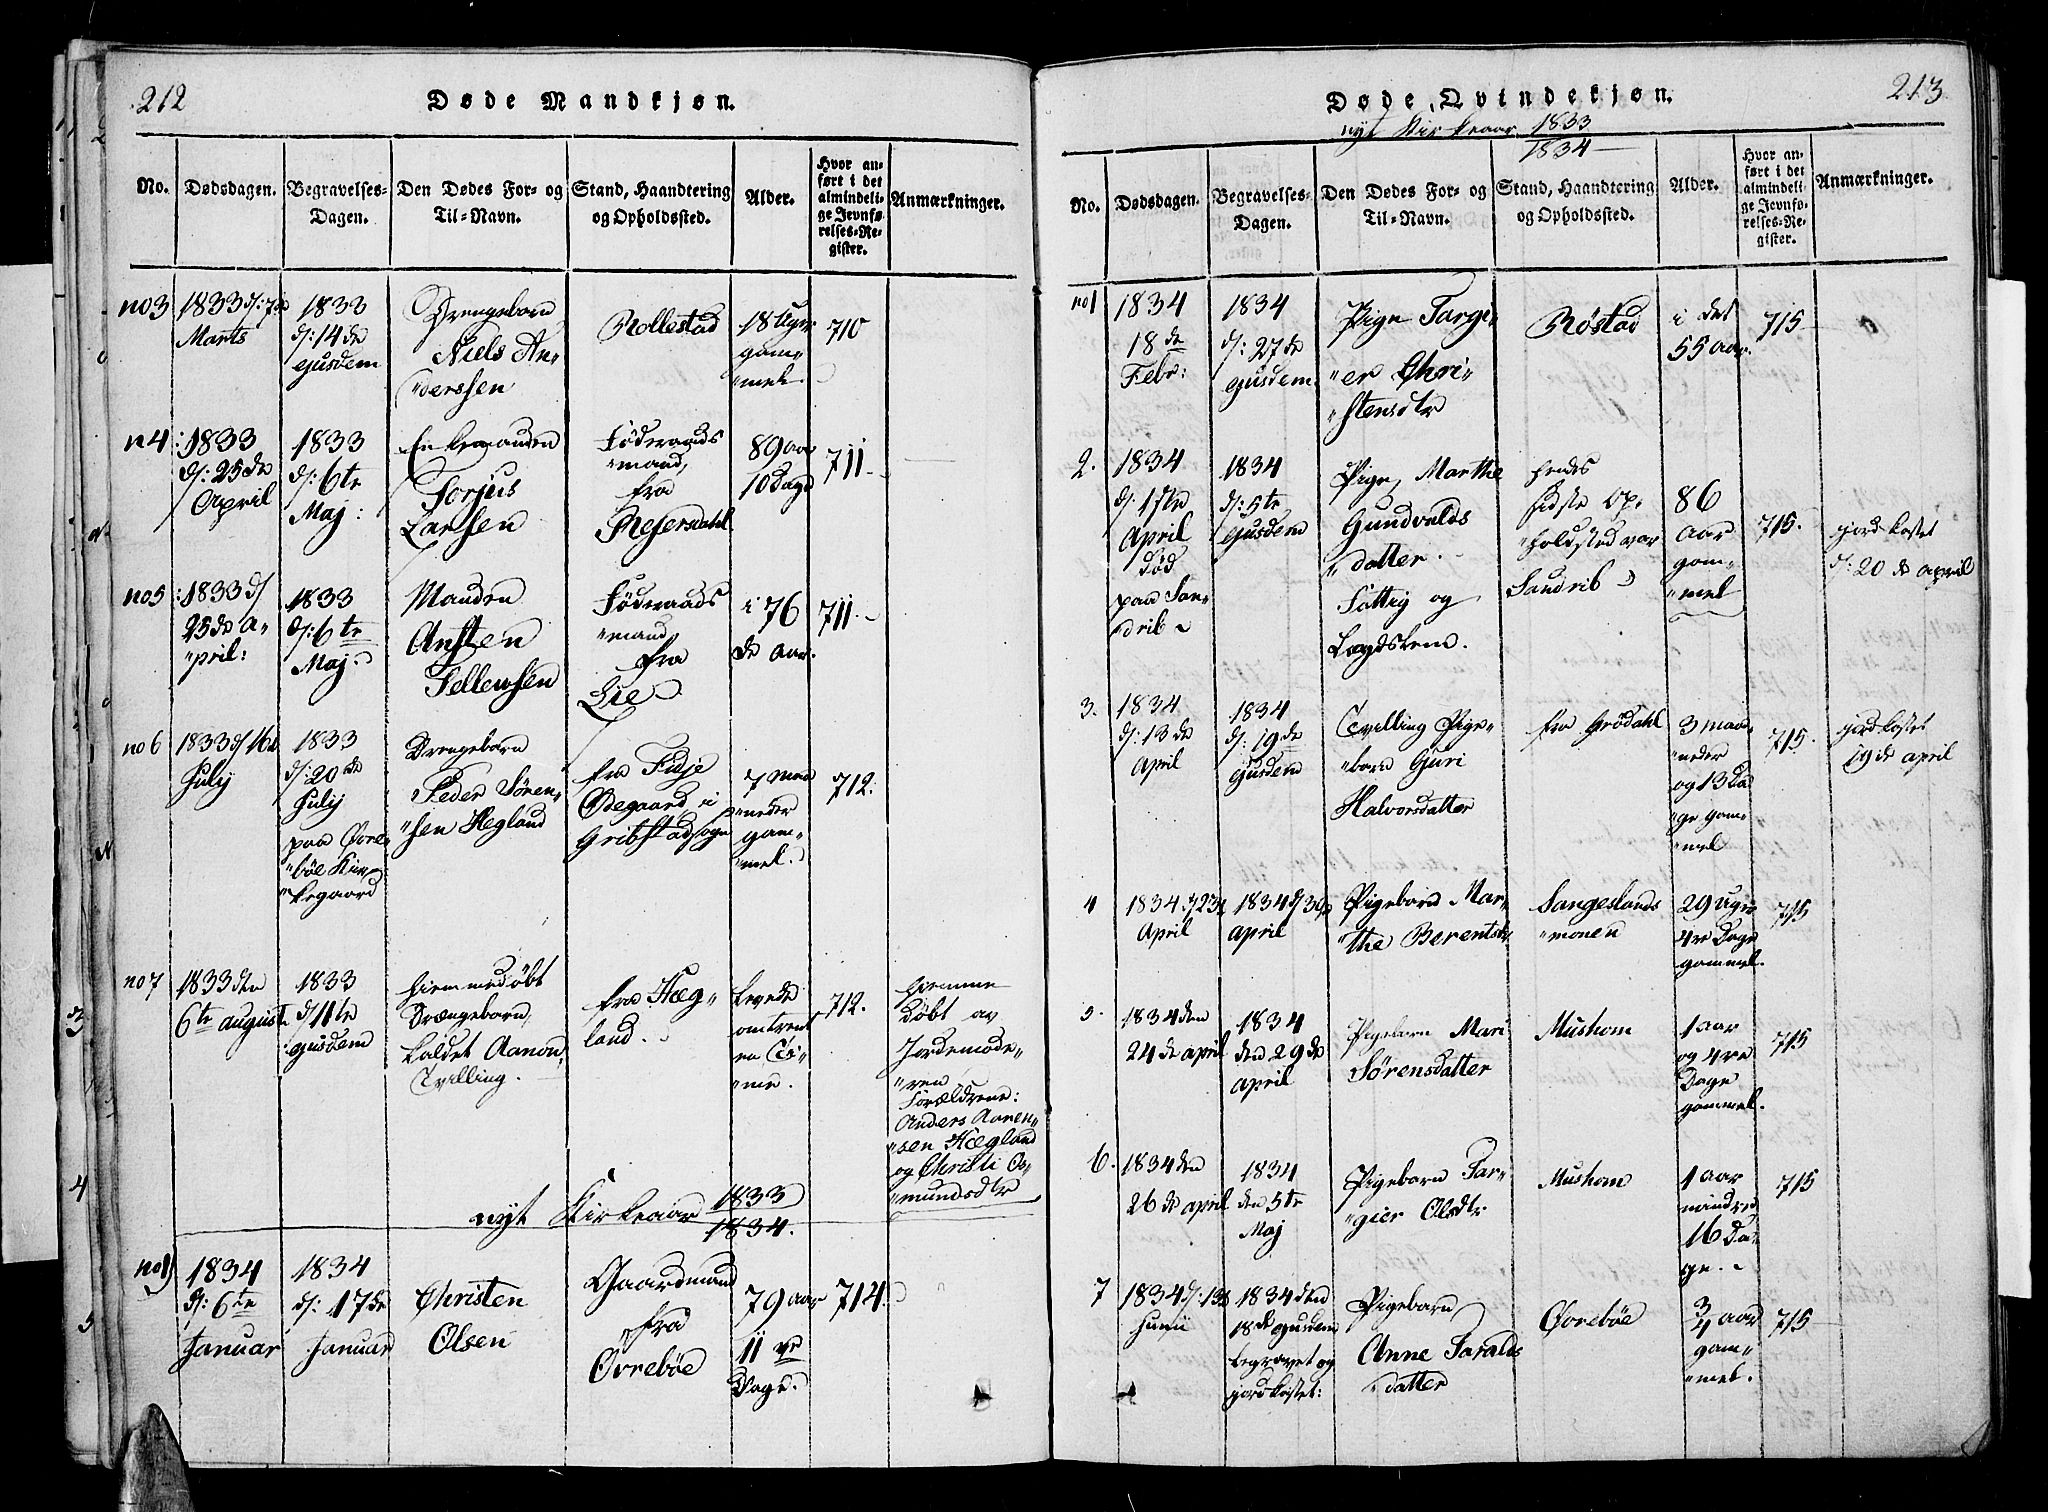 212
Døde Mandkjøn.
No.
Dødsdagen.
Begravelses-
Dagen.
Den Dødes For- og
Til-Navn.
Stand, Haandtering
og Opholdssted.
Alder.
Hvor an-
ført i det
almindeli-
ge Jevnfø-
relses-Re-
gister.
Anmærkninger.
no 3
1833 d/: 7de
Marts
1833
d/: 14 de
ejusdem
Drengebarn
Niels An-
"derssen
Rollestad
18 Uger
gam-
"mel
710
n 4
1833
d/: 25 de
April
1833
d/: 6te
Maj:
Enkemanden
Torjus
Larssen
Føderaads
"mand,
fra
Refersdahl
89 aar
10 Dage
711
no 5
1833 d/
25 de a-
"pril:
1833
d/: 6te
Maj:
Manden
Ansten
Tellewsen
Føderaads
"mand
fra
Lie
i 76
de aar.
711
no 6
1833 d/ 16d
July
1833
d/: 20 de
July
paa Øvre-
"bøe Kir-
"kegaard
Drengebarn
Peder Søren-
"sen Hegland
fra Fidje
Ødegaard i
Gribstadsogn
7 maa
"neder
gam-
"mel.
712.
no 7
1833 den
6te august
1833
d/ 11te
ejusdem
hiemmedøbt
Drængebarn,
kaldet Aanon,
Tvilling.
fra Hæg-
land.
levede
omtrent
en Ti-
"me.
712.
hjemme
døbt av
Jordemode-
"ren
Forældrene:
Anders Aanen-
"sen Hægland
og Christi Os-
"mundsdtr
nyt Kirkeaar 1833
1834.
no 1)
1834
d/: 6te
Januar
1834
d/: 17 de
Januar
Christen
Olsen
Gaardmand
fra
Øvrebøe
79 aar
11 ve
Dage.
714.
213
Døde Qvindekjøn.
nyt Kirkeaar 1833
1834
No.
Dødsdagen.
Begravelses-
Dagen.
Den Dødes For- og
Til-Navn.
Stand, Haandtering
og Opholdssted.
Alder.
Hvor an-
ført i det
almindeli-
ge Jevnfø-
relses-Re-
gister.
Anmærkninger.
no 1
1834
18 de
Febr:
1834
d/: 27 de
ejusdem
Pige Targi-
"er Chri-
"stensdtr
Røstad
i det
55 aar.
715
2.
1834
d/: 1ste
April
død
paa San-
"drib
1834
d/: 5te
ejusdem
Pige, Marthe
Gundvalds
"datter.
Fattig og
Lægdslem.
hendes
sidste Op-
"holdsted var
Sandrib
86
aar
gam-
"mel
715.
jordkastet
d/: 20 de april
3.
1834
d/: 13 de
April
1834
d/: 19 de
ejusdem
Tvilling Pige-
"barn Guri
Halvorsdatter
fra Grødahl
3 maa-
"neder
og 13 Da
"ge gam-
"mel
715.
jordkastet
19 de april
4
1834 d/ 23d
April
1834 d/ 30
april
Pigebarn Mar-
"the Berentsdr
Sangeslands
"monen
29 Uger
4re Dage
gammel.
715
5.
1834 den
24 de april
1834
den 29 de
april
Pigebarn Mari
Sørensdatter
Mushom
1 aar
og 4re
Dage
gammel.
715
6.
1834 den
26 de april
1834
den 5te
Maj
Pigebarn Tar-
"gier Olsdtr
Mushom
1 aar
mindre
16 Da-
ge.
715
7
1834 d/: 13d
Junii
1834 den
18 de ejusdem
begravet og
jordkastet:
Pigebarn
Anne Taralds
"datter
Øvrebøe
3/4 aar
gam-
"mel.
715